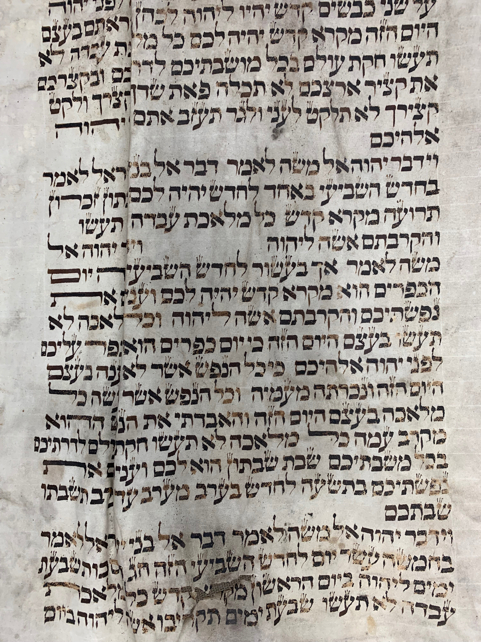 על שני כבשים קדש יהיו ליהוה לכהן
היום הזה מקרא קדש יהיה לכם כל מלאכת
תעשו חקת עולם בכל מושבתיכם לדרתיכם ובקצרכם
את קציר ארצכם לא תכלה פאת שדך קצירך ולקט
קצירך לא תלקט לעני ולגר תעזב אתם יהוה
אלהיכם
וידבר יהוה אל משה לאמר דבר אל בני ישראל לאמר
בחדש השביעי באחד לחדש יהיה לכם שבתון זכרון
תרועה מקרא קדש כל מלאכת עבדה תעשו
והקרבתם אשה ליהוה וידבר יהוה אל
משה לאמר אך בעשור לחדש השביעי הזה יום
הכפרים הוא מקרא קדש יהיה לכם ועניתם את
נפשתיכם והקרבתם אשה ליהוה וכל מלאכה לא
תעשו בעצם היום הזה כי יום כפרים הוא לכפר עליכם
לפני יהוה אלהיכם כי כל הנפש אשר לא תענה בעצם
היום הזה ונכרתה מעמיה וכל הנפש אשר תעשה כל
מלאכה בעצם היום הזה והאבדתי את הנפש ההוא
מקרב עמה כל מלאכה לא תעשו חקת עולם לדרתיכם
בכל משבתיכם שבת שבתון הוא לכם ועניתם את
נפשתיכם בתשעה לחדש בערב מערב עד ערב תשבתו
שבתכם
וידבר יהוה אל משה לאמר דבר אל בני ישראל לאמר
בחמשה עשר יום לחדש השביעי הזה חג הסכות שבעת
ימים ליהוה ביום הראשון מקרא קדש כל מלאכת
עבדה לא תעשו שבעת ימים תקריבו אשה ליהוה ביום